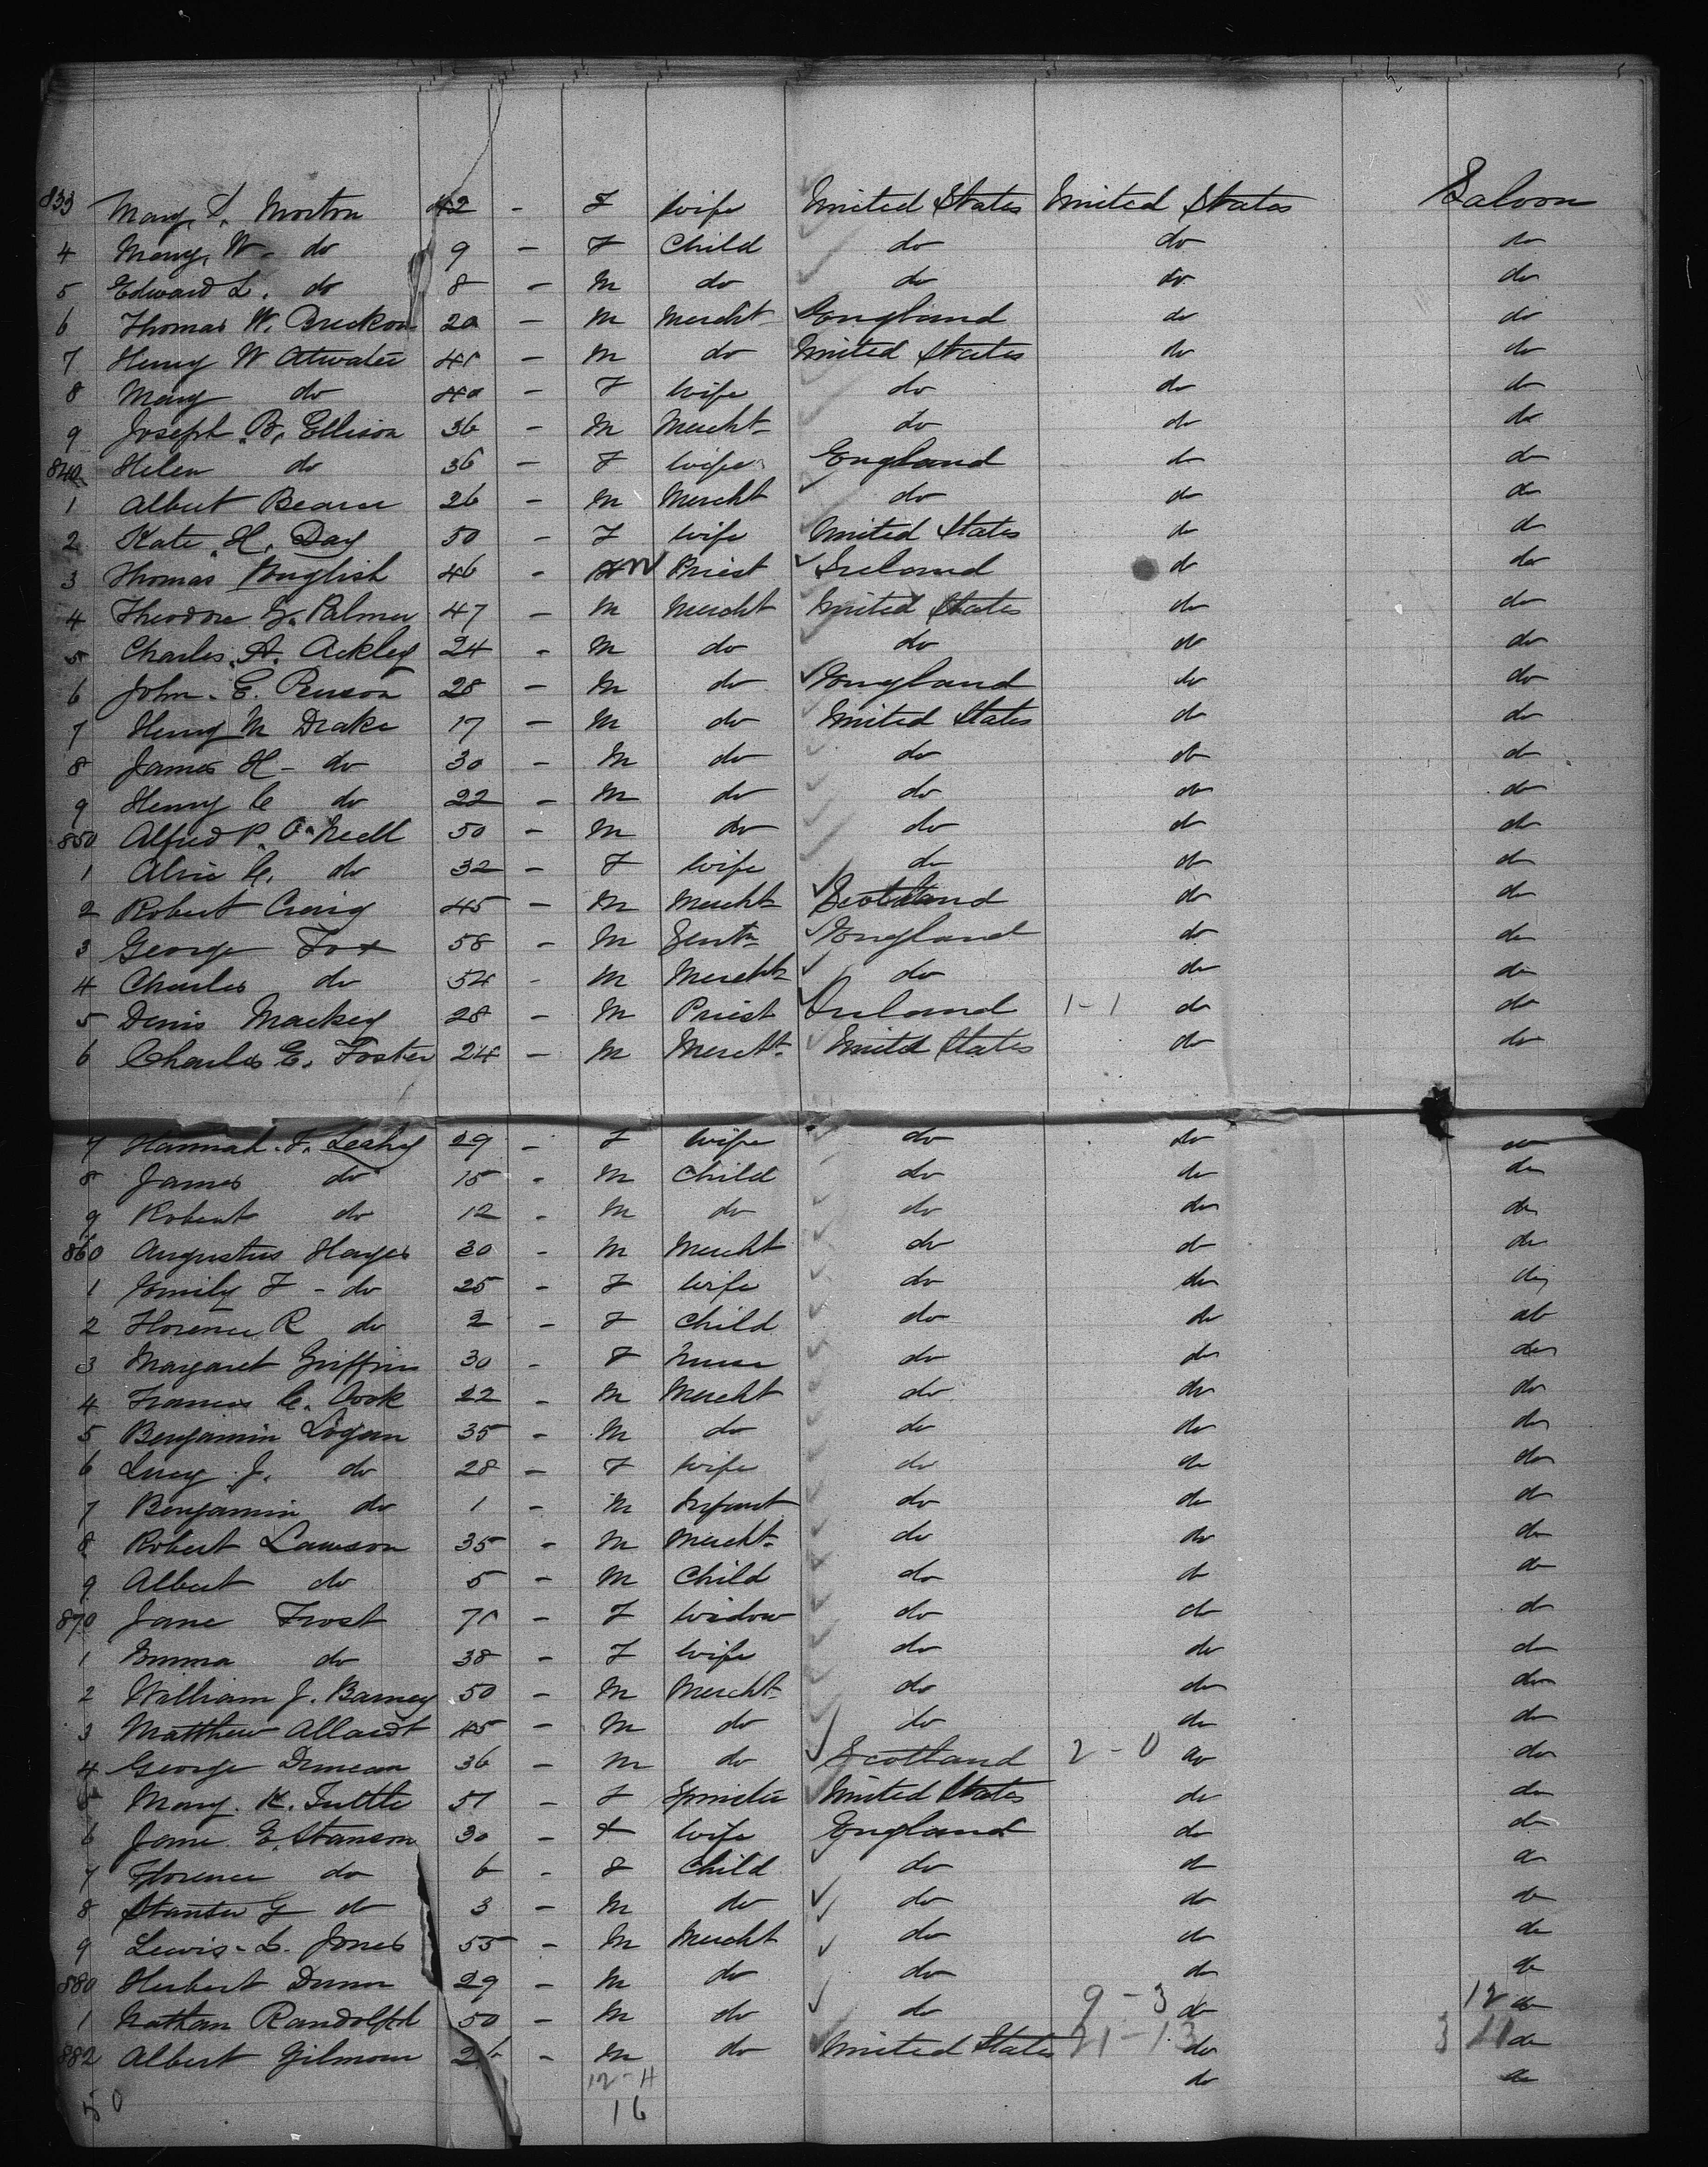 833 Mary L. Morton 42 - F wife United States United States Saloon
4 Mary W - do 9 - F Child do do do
5 Edward L. do 8 - M do do do do
6 Thomas W. 20 - M Mercht England do do
7 Henry W Atwater 41 - M do United States do do
8 Mary do 40 - F wife do do do
9 Joseph B. Ellison 36 - M Mercht- do do do
840 Helen do 36 - F wife England do do
1 Albert 26 - M Mercht do do do
2 Kate H. Day 50 - F wife United States do do
3 Thomas English 46 - M Priest Ireland do do
4 Theodore G. Palmer 47 - M Mercht United States do do
5 Charles A. Ackley 24 - M do do do do
6 John E. 28 - M do England do do
7 Henry M Drake 17 - M do United States do do
8 James H - do 30 - M do do do do
9 Henry C do 22 - M do do do do
850 Alfred P. O'Neill 50 - M do do do do
1 Alice C. do 32 - F wife do do do
2 Robert Craig 45 - M Mercht Scotland do do
3 George Fox 58 - M Gentn England do do
4 Charles do 54 - M Mercht do do do
5 Denis Mackey 28 - M Priest Ireland 1-1 do do
6 Charles E. Foster 24 - M Mercht- United States do do
7 Hannah F. Leahy 29 - F wife do do do
8 James do 15 - M Child do do do
9 Robert do 12 - M do do do do
860 Augustus Hayes 30 - M Mercht do do do
1 Emily F - do 25 - F wife do do do
2 Florence R do 2 - F Child do do do
3 Margaret Griffin 30 - F Nurse do do do
4 Francis C. Cook 22 - M Mercht do do do
5 Benjamin Logan 35 - M do do do do
6 Lucy J. do 28 - F wife do do do
7 Benjamin do 1 - M Infant do do do
8 Robert Lawson 35 - M Mercht- do do do
9 Albert do 5 - M Child do do do
870 Jane Frost 71 - F widow do do do
1 Emma do 38 - F wife do do do
2 William J. Barney 50 - M Mercht- do do do
3 Matthew 45 - M do do do do
4 George Duncan 36 - M do Scotland 2-0 do do
5 Mary K. Tuttle 51 - F Spinster United States do do
6 Jane E. Stanson 30 - F wife England do do
7 Florence do 6 - F Child do do do
8 G do 3 - M do do do do
9 Lewis L. Jones 55 - M Mercht do do do
880 Herbert Dunn 29 - M do do do do
1 Nathan Randolph 50 - M do do 9-3 do 12 do
882 Albert Gilmour 26 - M do United States 21-13 do 3 11 do
12-4 do do
50 16